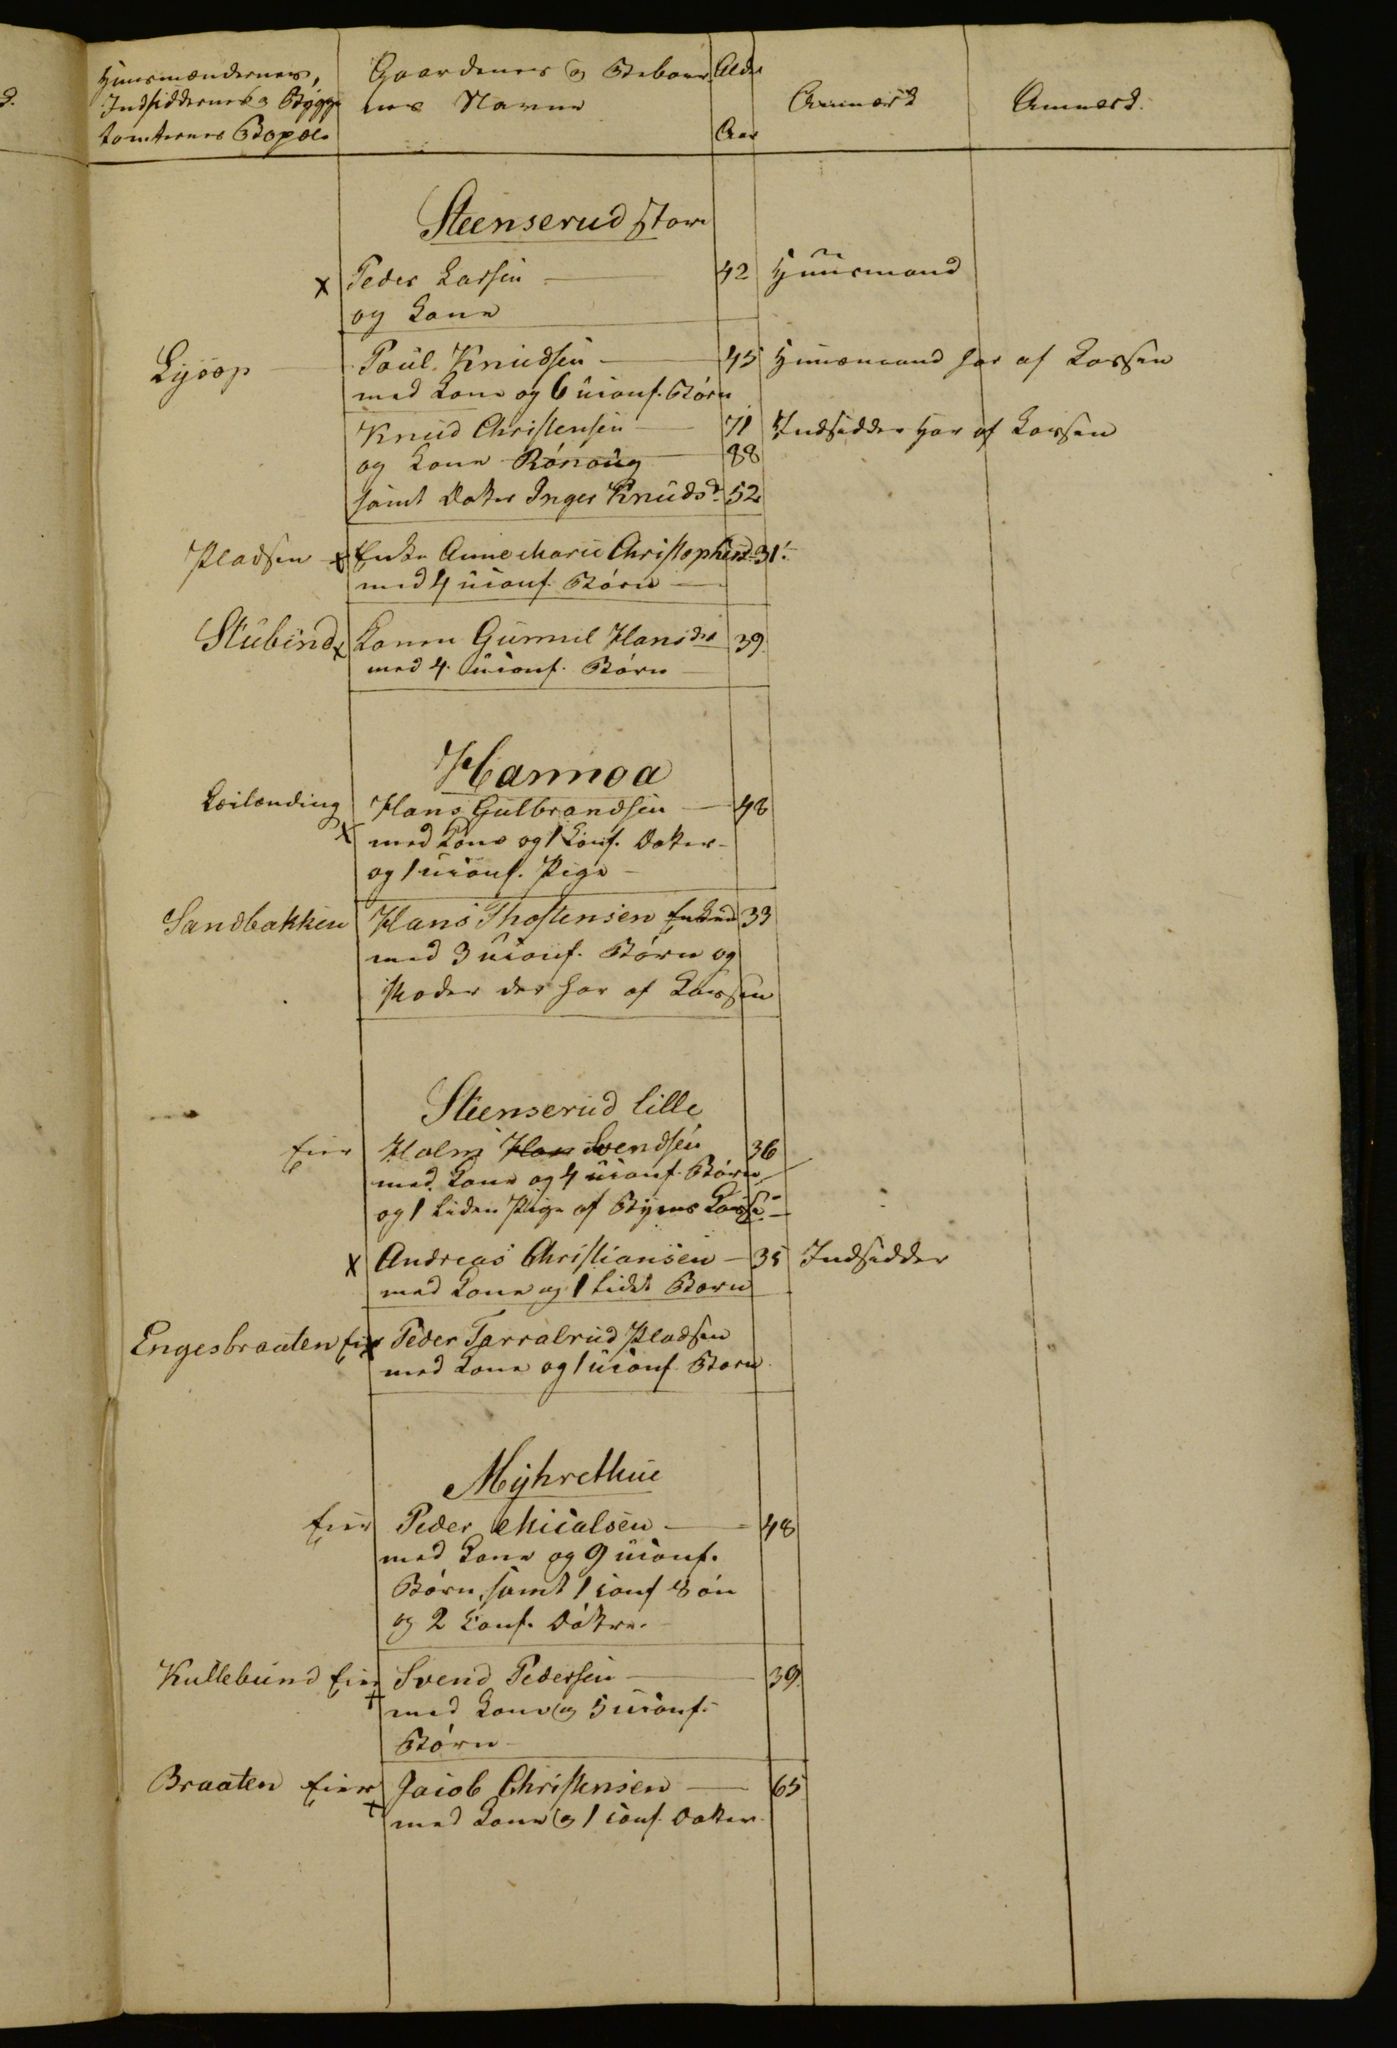 Huusmændernes, Gaardenes og Beboer- Alder
Indsiddernes og Bygge- ne Navne Anmærk Anmærk.
tomternes Bopæle Aar
Steenserud store
x Peder Larsen 42 Huusmand
og Kone
Lysop Poul Knudsen 45 Huusmand har af Kassen
med Kone og 6 uconf. Börn
Knud Christensen 71 Indsidder har af Kassen
og Kone Rönoug 88
samt Datter Inger Knudsd. 52
Pladsen x Enke Anne Marie Christophersd. 31
med 4 uconf. Börn
Stubind x Konen Gunnil Hansdr 39
med 4 uconf. Börn
Hammoa
Leilænding x Hans Gulbrandsen 48
med Kone og 1 Conf. Datter
og 1 uconf. Pige
Sandbakken Hans Thostensen Enkem 33
med 3 uconf. Börn og
Moder der har af Kassen
Steenserud lille
Eier Holm Svendsen 36
med Kone og 4 uconf. Börn
og 1 liden Pige af Byens Kasse
x Andreas Christiansen 35 Indsidder
med Kone og 1 lidet Barn
Engesbraaten Eier x Peder Tarralrud Pladsen
med Kone og 1 uconf. Barn
Myhrethue
Eier Peder Micalsen 48
med Kone og 9 uconf.
Börn, samt 1 conf Sön
og 2 Conf. Döttre
Kullebund Eier + Svend Pedersen 39
med Kone og 5 uconf.
Börn
Braaten Eier + Jacob Christensen 65
med Kone og 1 conf. Datter